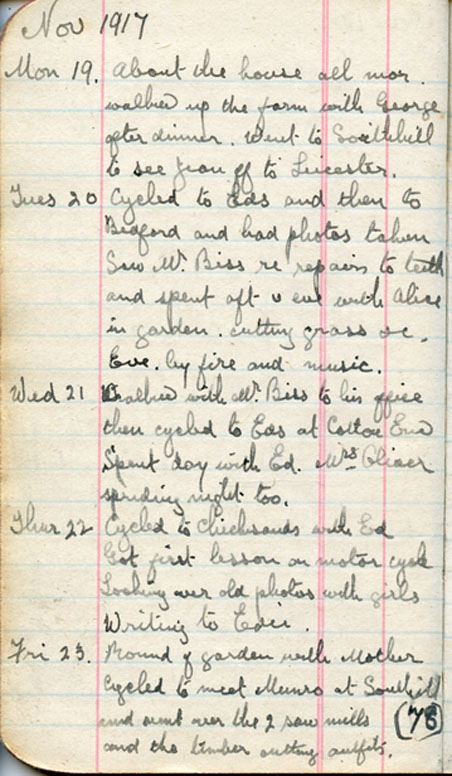 Nov 1917
Mon 19. About the house all mor.
walked up the farm with George
after dinner. Went to Southill
to see Jean off to Leicester.
Tues 20 Cycled to Eds and then to
Bedford and had photos taken
Saw Mr. Biss re repairs to teeth
and spent aft & eve with Alice
in garden. cutting grass &c.
Eve. by fire and music.
Wed 21 Walked with Mr. Biss to his office
then cycled to Eds at Cotton End
Spent day with Ed. Mrs
spending night too.
Thur 22 Cycled to Chicksands with Ed
Got first lesson on motor cycle
Looking over old photos with girls
Writing to
Fri 23. Round garden with Mother
Cycled to meet Munro at Southill
and went over the 2 saw mills (78)
and the timber cutting outfits.